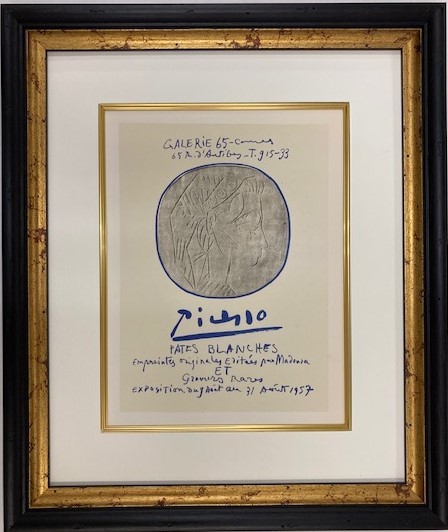 GALERIE 65-Cannes
65 R. d'Antibes - T. 915-33
Picasso
PATES BLANCHES
Empreintes originales Editées par Madoura
ET
Gravures Rares
EXPOSITION du 9 Août au 31 Août 1957